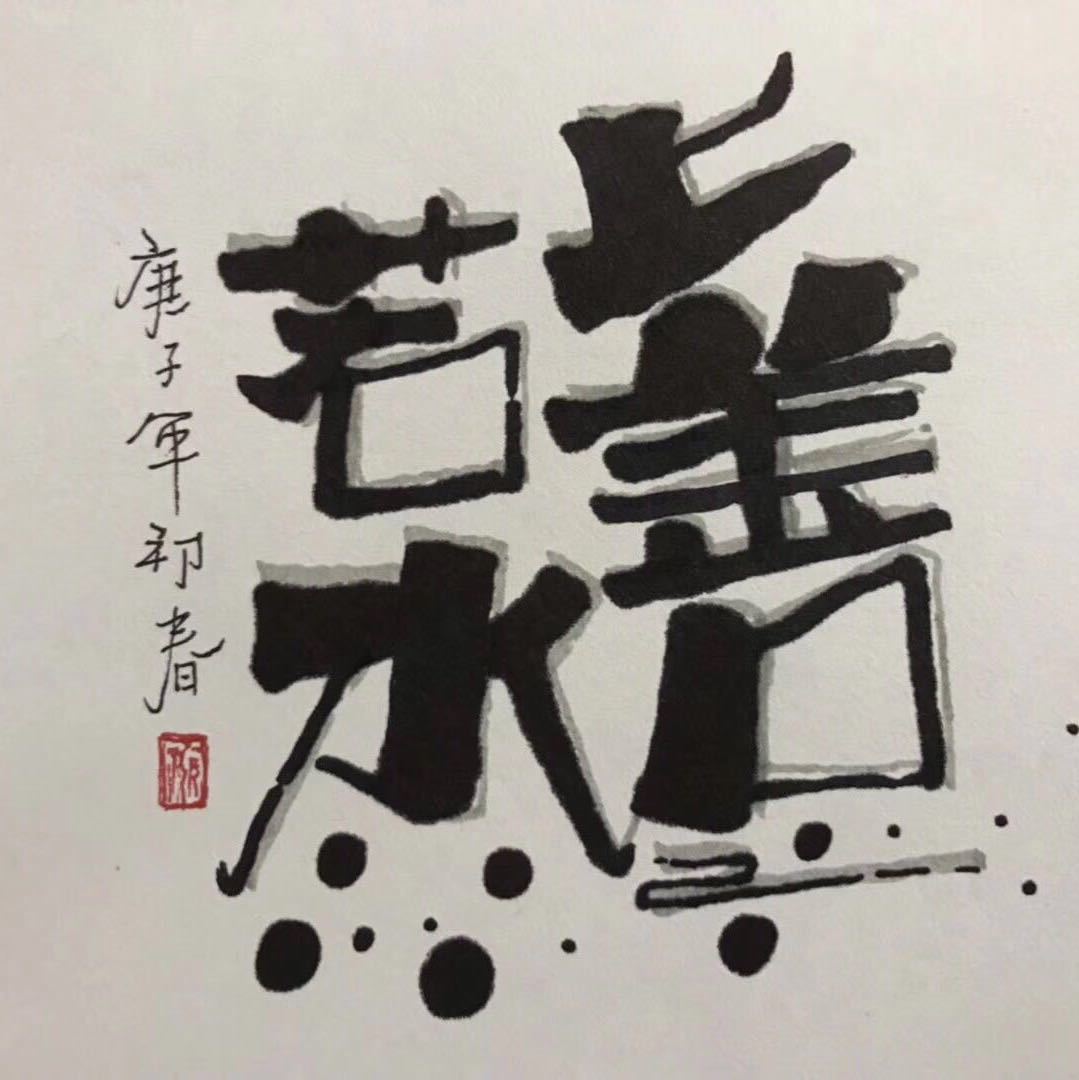 上善
若水
庚子年初春